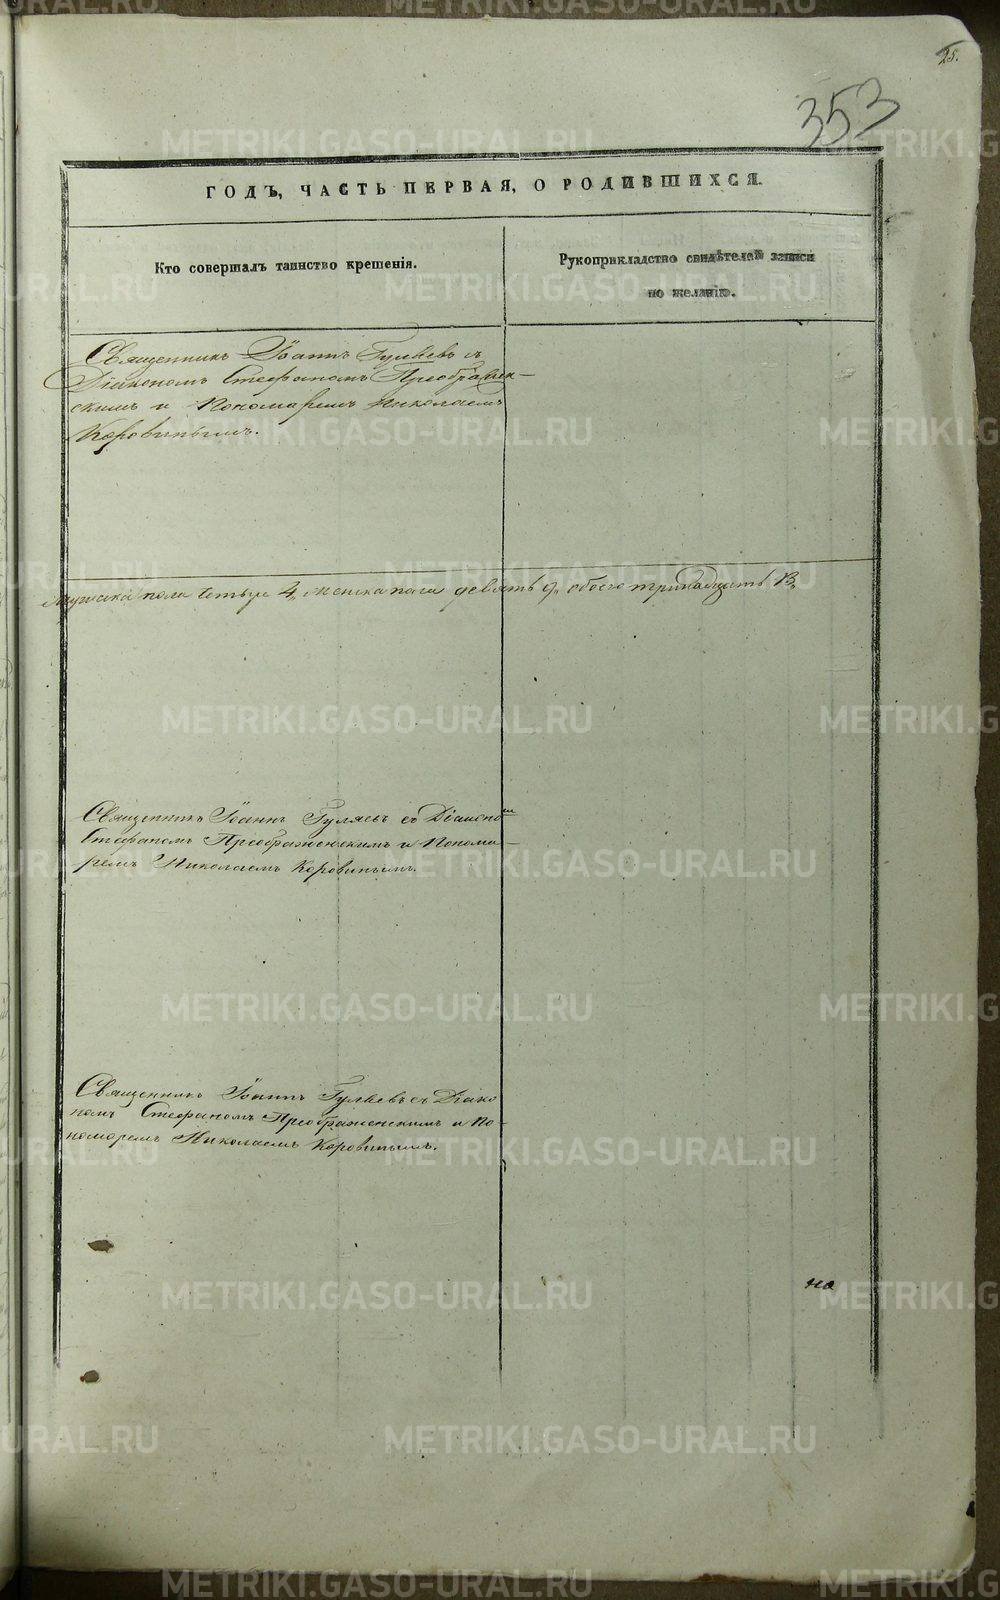 25.
353
ГОДЪ, ЧАСТЬ ПЕРВАЯ, О РОДИВШИХСЯ.
Кто совершалъ таинство крещенія.
Рукоприкладство свидѣтелей записи
по желанію.
Священникъ Іоаннъ Гуляевъ съ
Діакономъ Стефаномъ Преображен-
скимъ и Пономаремъ Николаемъ
Коровинымъ.
Мужска пола четыре 4, женска пола девять 9, обоего тринадцать 13,
Священникъ Іоаннъ Гуляевъ съ Діакономъ
Стефаномъ Преображенскимъ и Понома-
ремъ Николаемъ Коровинымъ.
Священникъ Іоаннъ Гуляевъ съ Діако
номъ Стефаномъ Преображенскимъ и По-
номаремъ Николаемъ Коровинымъ.
на
METRIKI.GASO-URAL.RU